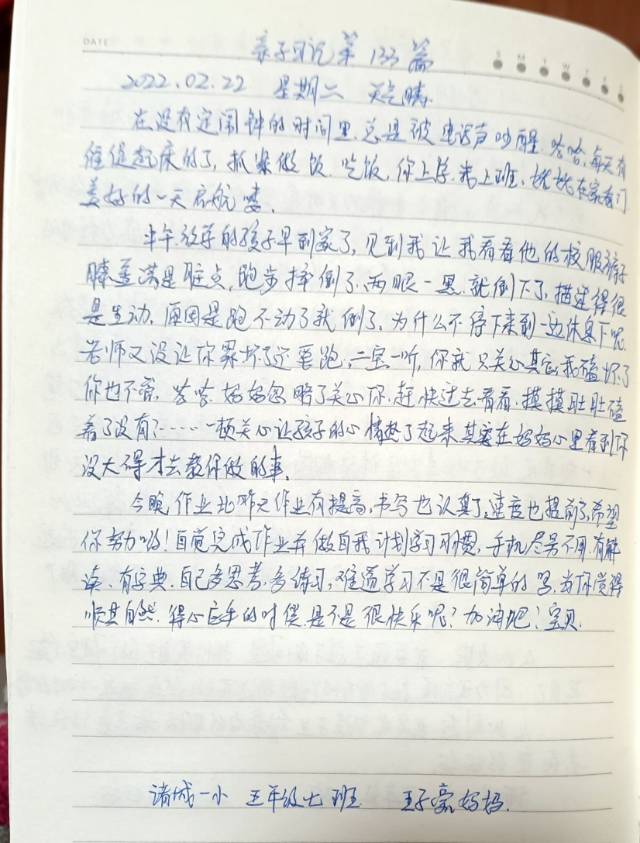 DATE
S M T W T F S
亲子日记第133篇
2022.02.22 星期二 天气晴.
在没有定闹钟的时间里总是被电话声吵醒.哈哈,每天有
催促起床的了,抓紧做饭.吃饭,你上学.我上班,姥姥在家
美好的一天启航喽.
中午放学的孩子早到家了,见到我让我看看他的校服裤子
膝盖满是脏点,跑步摔倒了.两眼一黑.就倒下了,描述得很
是生动.原因是跑不动了我倒了,为什么不停下来到一边休息下呢
老师又没让你累坏了还要跑.二宝一听,你就只关心其它,我磕坏了
你也不管.哈哈.妈妈忽略了关心你.赶快过去看看.摸摸肚肚磕
着了没有?……一顿关心让孩子的心情好了起来其实在妈妈心里看到你
没大碍才去教你做的事.
今晚,作业比昨天作业有提高,书写也认真了,速度也提前了,希望
你努力哟!自觉完成作业并做自我计划学习习惯,手机尽量不用有解
读.有字典.自己多思考.多练习,难道学习不是很简单的吗,当你觉得
顺其自然.得心应手的时候.是不是很快乐呢?加油吧!宝贝.
诸城一小 五年级七班 王子豪妈妈.